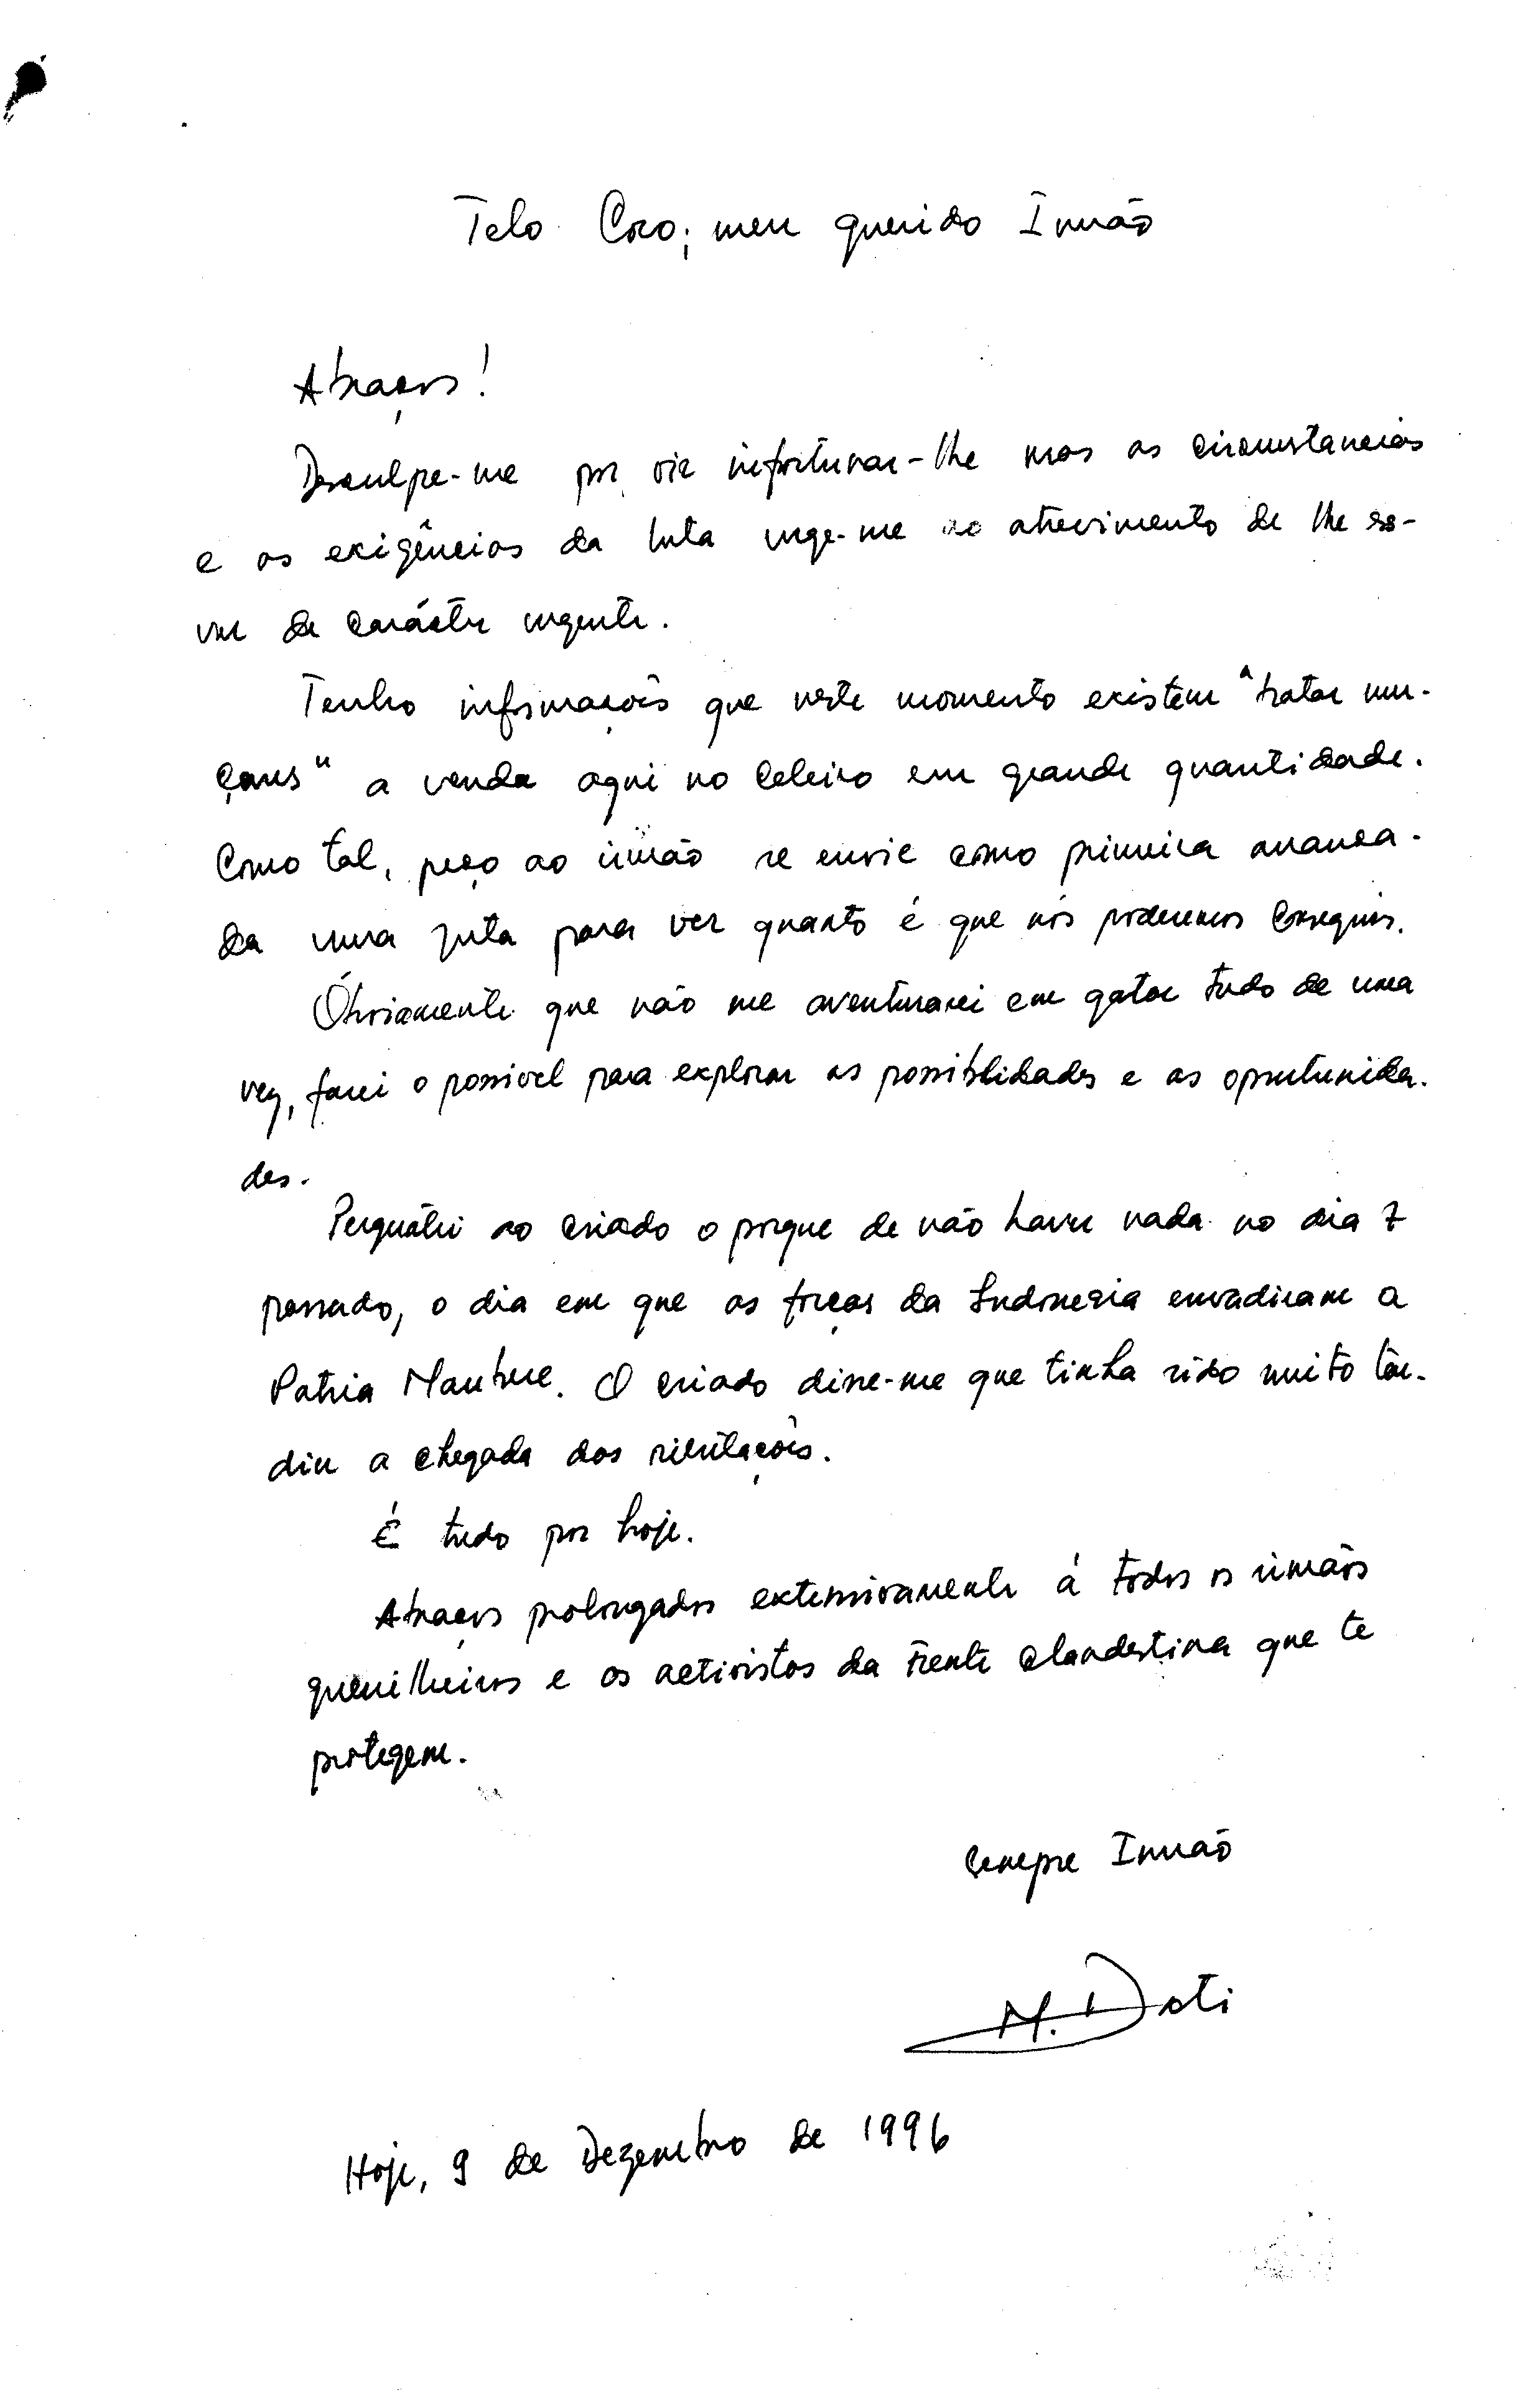 Telo Coro; meu querido Irmão
Abraços!
Desculpe-me por vir infortunar-lhe mas as circunstancias
e as exigências da luta urge-me ao atrevimento de lhe ro-
var de carácter urgente.
Tenho informações que neste momento existem "tratar mu-
çares" a venda aqui no Celeiro em grande quantidade.
Como tal, peço ao irmão se envie como primeira arranca-
da uma juta para ver quanto é que nós poderemos conseguir.
Óbviamente que não me aventurarei em gatar tudo de uma
vez, farei o possivel para explorar as possiblidades e as oportunida-
des.
Perguntei ao criado o porque de não haver nada no dia 7
passado, o dia em que as forças da Indonesia envadiram a
Patria Maubere. O criado disse-me que tinha sido muito tar-
diu a chegada das
É tudo por hoje.
Abraços prolongados extensivamente á todos os irmãos
guerrilheiros e os activistas da Frente clandestina que te
protegem.
Sempre Irmão
M. Dati
Hoje, 9 de Dezembro de 1996